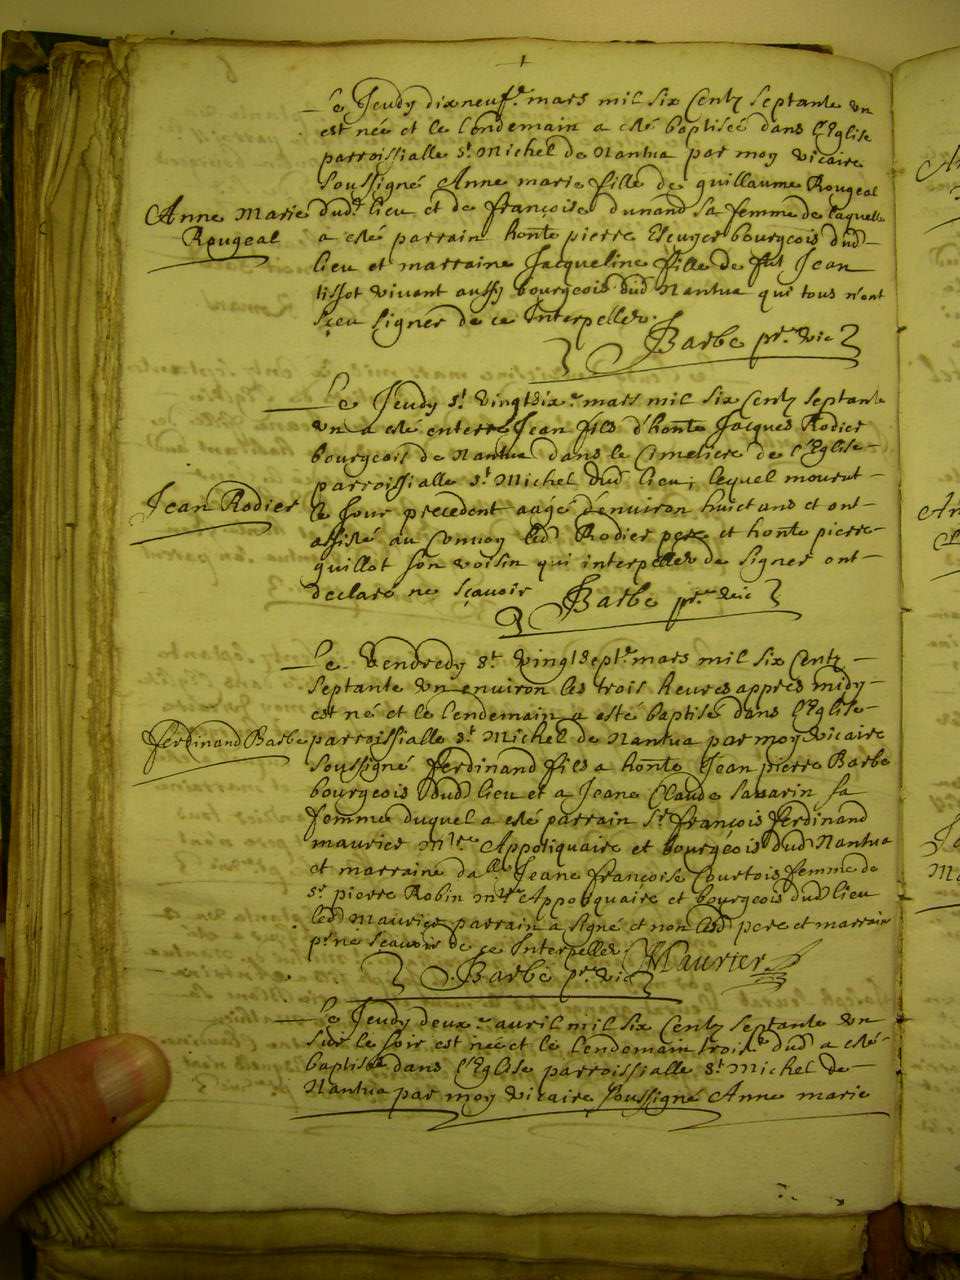 Le Jeudy dixneuf.e mars mil six Centz septante un
est née et le lendemain a esté baptisée dans l'Eglise
parroissialle st. Michel de Nantua par moy vicaire
soussigné Anne marie fille de guillaume Rougeal
Anne Marie
Rougeal
dud. lieu et de françoise dunand sa femme de laquelle
a esté parrain honte pierre bourgeois dud
lieu et marraine Jacqueline fille de fut Jean
tissot vivant aussy bourgeois dud Nantua qui tous n'ont
sçeu signer de ce Interpellez.
Barbe pr. vic
Le Jeudy st. vingtsix.e mars mil six Centz septante
un a esté enterré Jean fils d'honte Jacques Rodier
bourgeois de Nantua dans le Cimetiere de l'Eglise
parroissialle st Michel dud lieu, lequel mourut
Jean Rodier
le Jour precedent aagé d'environ huict ans et ont
assisté au Convoy led Rodier pere et honte pierre
guillot son voisin qui interpellez de signer ont
declaré ne sçavoir Barbe pr. vic
Le Vendredy st. vingtsept.e mars mil six Centz
septante un environ les trois heures appres midy
est né et le lendemain a esté baptisé dans l'Eglise
Ferdinand Barbe
parroissialle st. Michel de Nantua par moy vicaire
soussigné ferdinand fils a honte Jean pierre Barbe
bourgeois dud lieu et a Jeane Claude Savarin sa
femme duquel a esté parrain sr. françois ferdinand
maurier mtre Appotiquaire et bourgeois dud Nantua
et marraine dalle Jeane françoise Courtois femme de
sr. pierre Robin mtre Appotiquaire et bourgeois dud lieu
led Maurier parrain a signé et non lesd pere et marraine
pr. ne sçavoir de ce Interpellez Maurier
Barbe pr. vic
Le Jeudy deux.e avril mil six Centz septante un
sur le soir est née et le lendemain trois.e dud a esté
baptisée dans l'Eglise parroissialle st. Michel de
Nantua par moy vicaire soussigné Anne marie